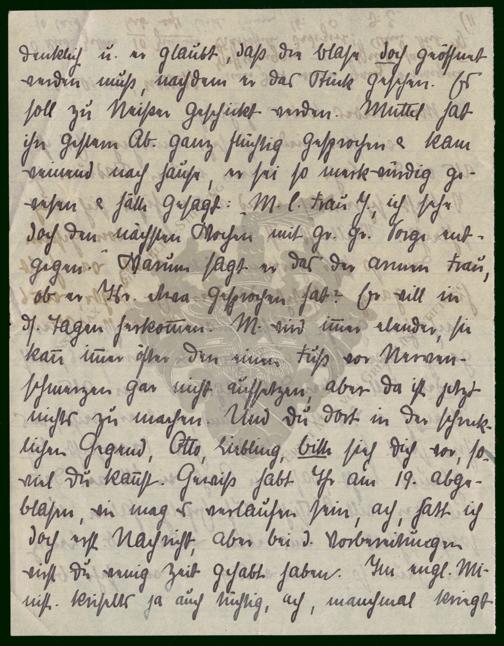 denklich u. er glaubt, daß die Blase doch geöffnet
werden muß, nachdem er das Stück gesehen. Er
soll zu Neißer geschickt werden. Muttel hat
ihn gestern Ab. ganz flüchtig gesprochen & kam
weinend nach Hause, er sei so merkwürdig ge-
wesen & hätte gesagt: "M. l. Frau J, ich sehe
doch den nächsten Wochen mit gr. gr. Sorge ent-
gegen" Warum sagt er das der armen Frau,
ob er Thr. etwa gesprochen hat? Er will in
d. Tagen herkommen. M. wird immer elender, sie
kann immer öfter den einen Fuß vor Nerven-
schmerzen gar nicht aufsetzen, aber da ist jetzt
nichts zu machen. Und Du dort in der schreck-
lichen Gegend, Otto, Liebling, bitte sieh Dich vor, so-
viel Du kannst. Gewiß habt Ihr am 19. abge-
blasen, wie mag es verlaufen sein, ach, hätt ich
doch erst Nachricht, aber bei d. Vorbereitungen
wirst Du wenig Zeit gehabt haben. Im engl. Mi-
nist. kriselts ja auch tüchtig, ach, manchmal kriegt